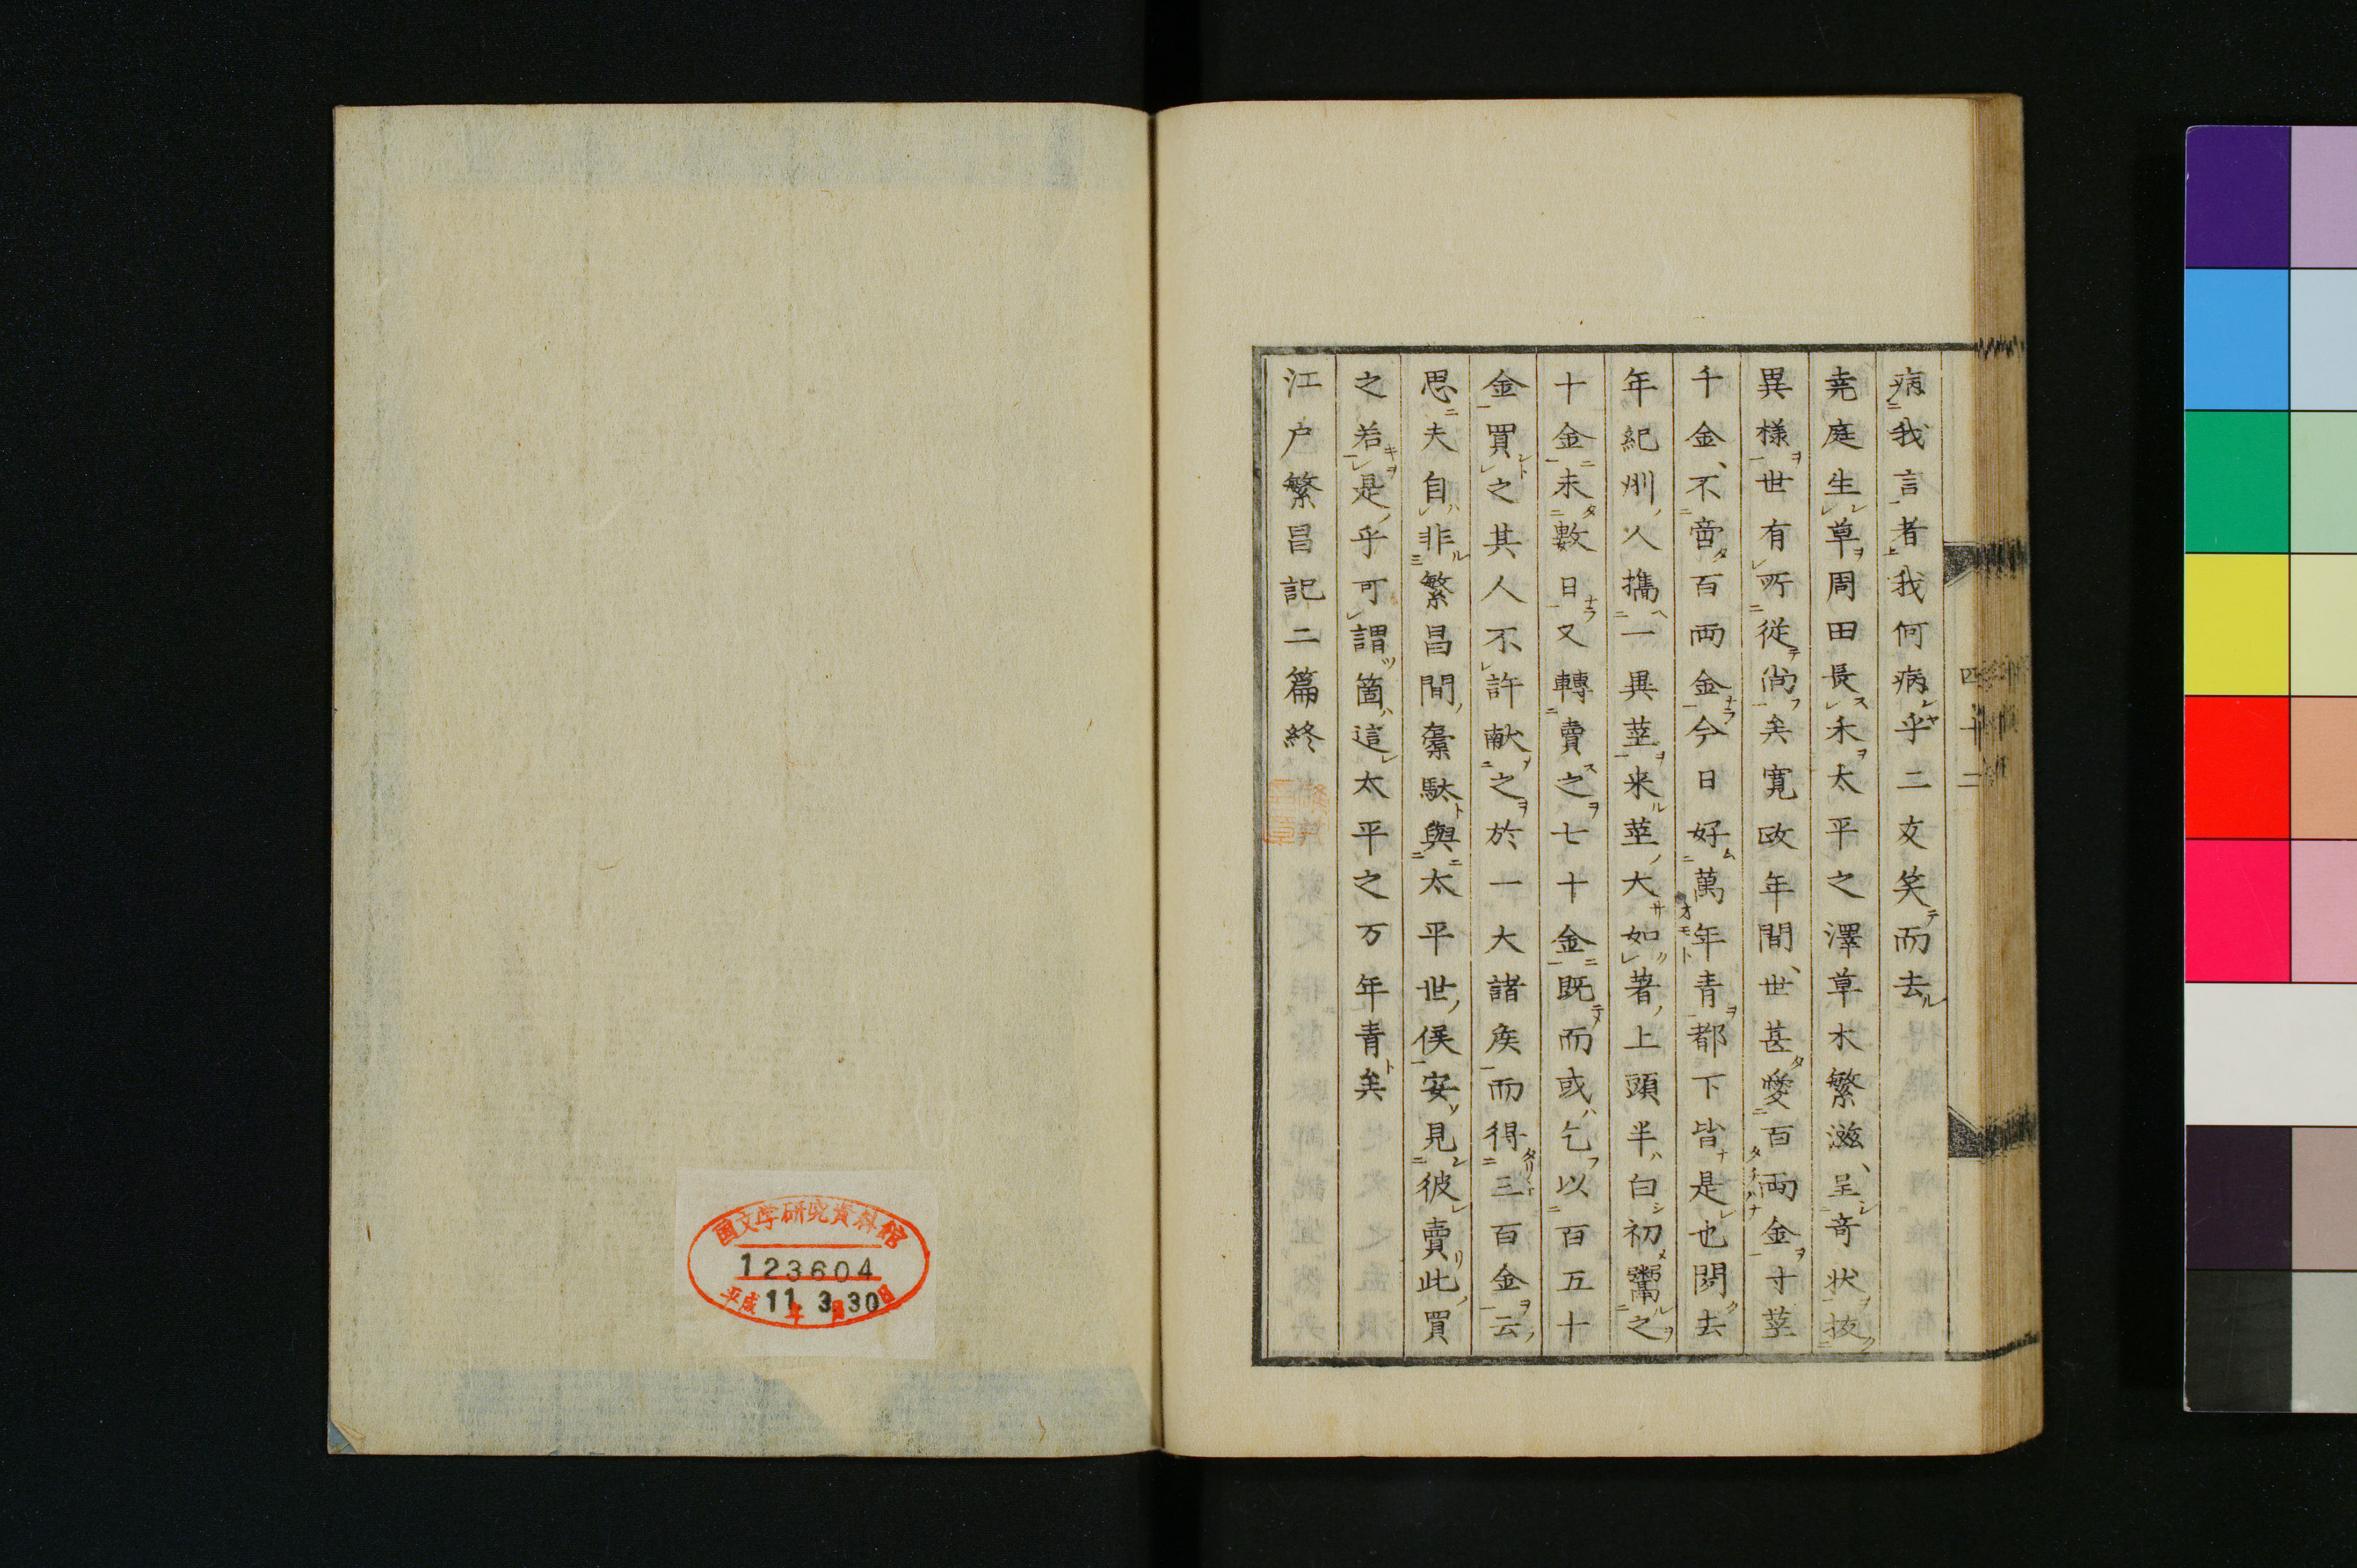 病我言者我何病乎二亥笑而去
堯庭生草周田長禾太平之澤草木繁滋呈竒状抜
異様世有所従尚矣寛政年間世甚愛百両金寸莖
千金不啻百両金今日好萬年青都下皆是也閲去
年紀州人攜一異莖来莖大如著上頭半白初鬻之
十金未數日又轉賣之七十金既而或乞以百五十
金買之其人不許献之於一大諸矦而得三百金云
思夫自非繁昌間槖駄與太平世侯安見彼賣此買
之若是乎可謂箇這太平之万年青矣
江戸繁昌記二篇終
四十二
国文学研究資料館
123604
平成11年3月30日